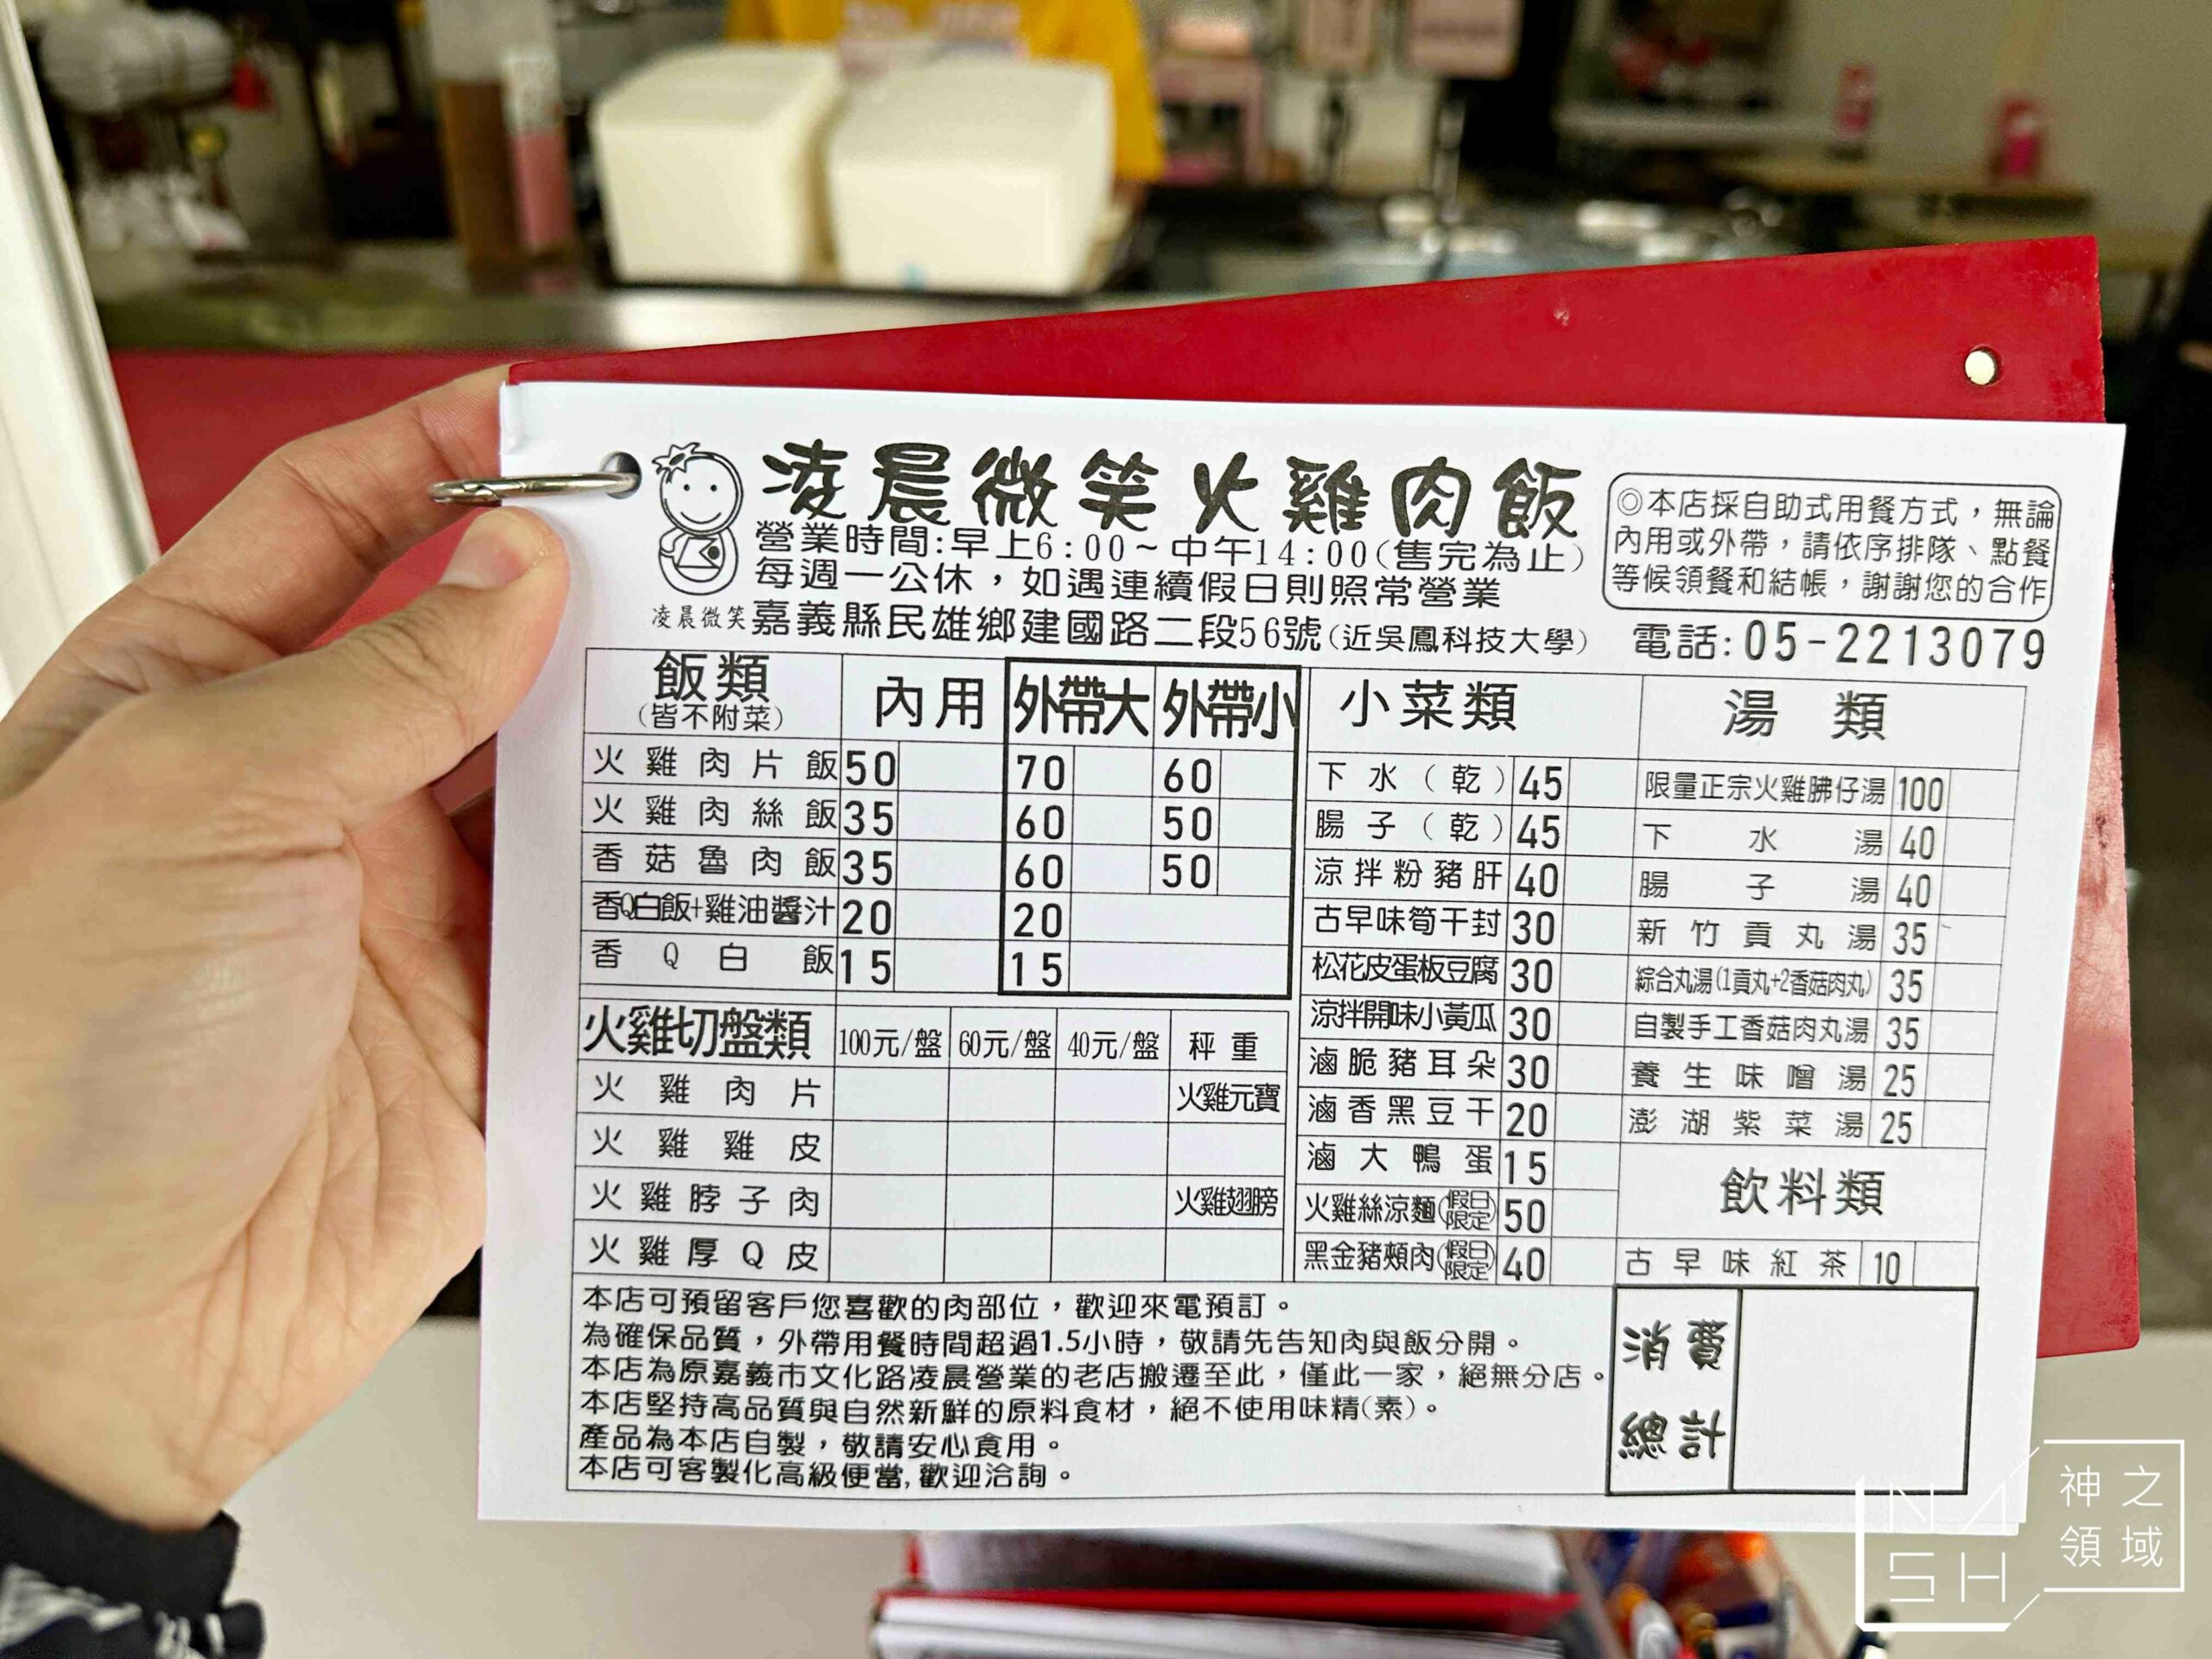 凌晨微笑火雞肉飯
營業時間:早上6:00~中午14:00(售完為止)
每週一公休，如遇連續假日則照常營業
凌晨微笑
嘉義縣民雄鄉建國路二段56號(近吳鳳科技大學)
◎本店採自助式用餐方式，無論
內用或外帶，請依序排隊、點餐
等候領餐和結帳，謝謝您的合作
電話:05-2213079
飯類 (皆不附菜) 內用 外帶大 外帶小
火雞肉片飯 50 70 60
火雞肉絲飯 35 60 50
香菇魯肉飯 35 60 50
香Q白飯+雞油醬汁 20 20
香Q白飯 15 15
火雞切盤類 100元/盤 60元/盤 40元/盤 秤重
火雞肉片 火雞元寶
火雞雞皮
火雞脖子肉 火雞翅膀
火雞厚Q皮
小菜類
下水(乾) 45
腸子(乾) 45
涼拌粉豬肝 40
古早味筍干封 30
松花皮蛋板豆腐 30
涼拌開味小黃瓜 30
滷脆豬耳朵 30
滷香黑豆干 20
滷大鴨蛋 15
火雞絲涼麵(假日限定) 50
黑金豬頰肉(假日限定) 40
湯類
限量正宗火雞胇仔湯 100
下水湯 40
腸子湯 40
新竹貢丸湯 35
綜合丸湯(1貢丸+2香菇肉丸) 35
自製手工香菇肉丸湯 35
養生味噌湯 25
澎湖紫菜湯 25
飲料類
古早味紅茶 10
本店可預留客戶您喜歡的肉部位，歡迎來電預訂。
為確保品質，外帶用餐時間超過1.5小時，敬請先告知肉與飯分開。
本店為原嘉義市文化路凌晨營業的老店搬遷至此，僅此一家，絕無分店。
本店堅持高品質與自然新鮮的原料食材，絕不使用味精(素)。
產品為本店自製，敬請安心食用。
本店可客製化高級便當,歡迎洽詢。
消費
總計
NASH
神之
領域